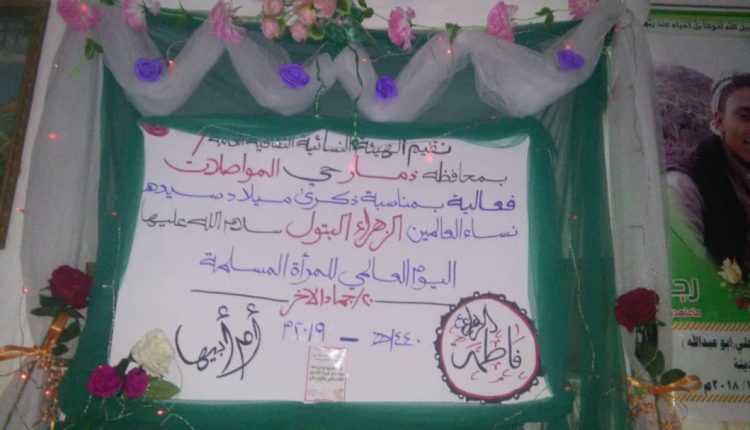 تقيم الهيئة النسائية الثقافية العامة /
بمحافظة ذمار حي المواصلات
فعالية بمناسبة ذكرى ميلاد سيدة
نساء العالمين الزهراء البتول سلام الله عليها
اليوم العالمي للمرأة المسلمة
٢٠/جماد الآخر
١٤٤٠هـ - ٢٠١٩م
أم أبيها
فاطمة الزهراء
أحياء عند
علي ابو عبدالله)
٢٠١٨م